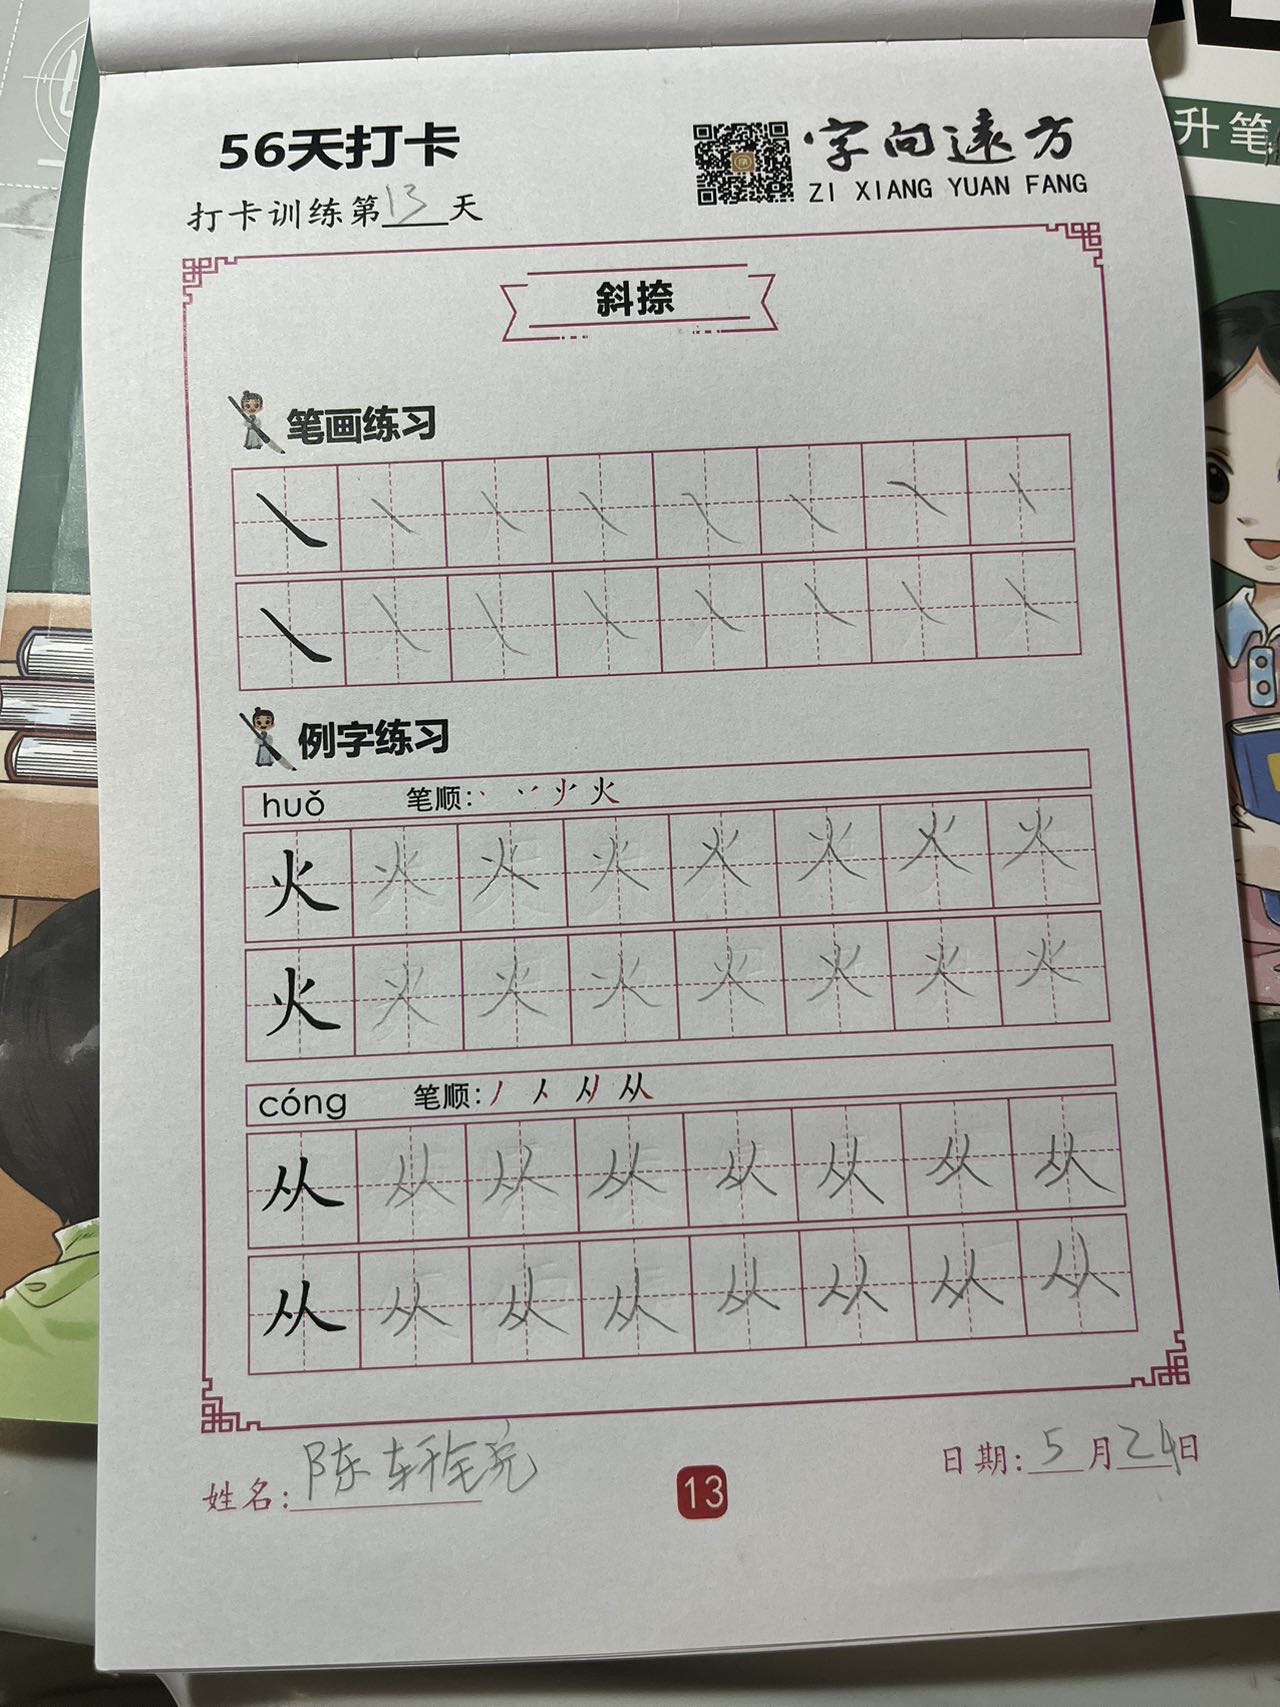 56天打卡
字向远方
ZI XIANG YUAN FANG
打卡训练第13天
升笔
斜捺
笔画练习
例字练习
huǒ 笔顺：
火 火 火 火 火 火 火 火
火 火 火 火 火 火 火 火
cóng 笔顺：
从 从 从 从 从 从 从 从
从 从 从 从 从 从 从 从
姓名：陈轩
日期：5月24日
13